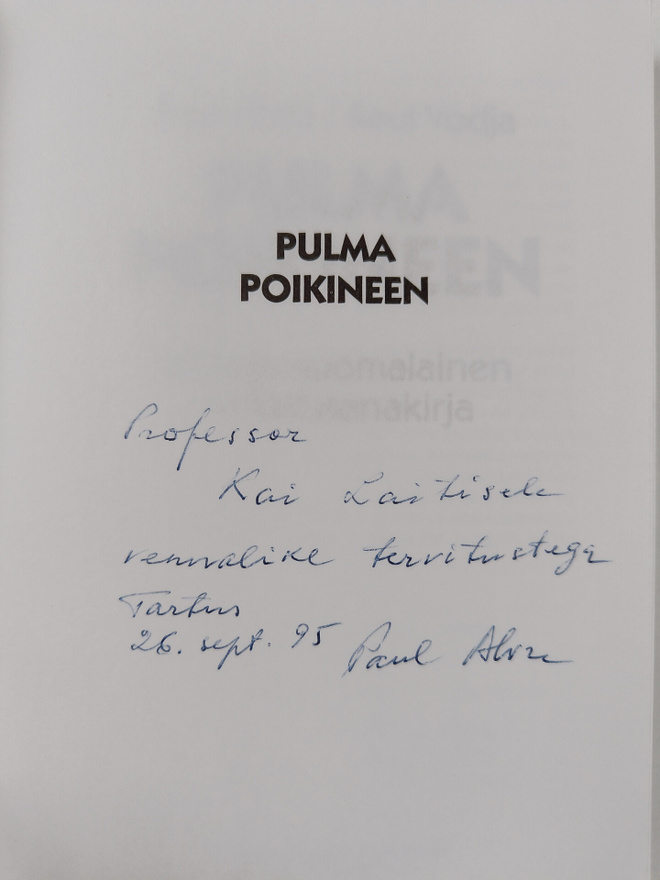 PULMA
POIKINEEN
Professor
Kai Laitisele
vennalike tervitustega
Tartus
26. sept. 95 Paul Alvre